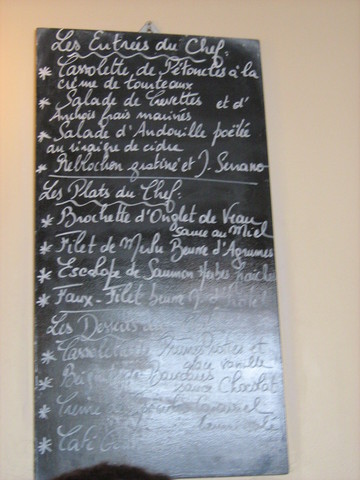 Les Entrées du Chef.
* Cassolette de Pétoncles à la
crème de tourteaux
* Salade de Crevettes et d'
Anchois frais marinés
* Salade d'Andouille poêlée
au vinaigre de cidre
* Reblochon gratiné et J. Serrano
Les Plats du Chef.
* Brochette d'Onglet de Veau
sauce au Miel
* Filet de Merlu Beurre d'Agrumes
* Escalope de Saumon Herbes fraîches
* Faux-Filet beurre
Les Desserts du
* Cassolette et
glace vanille
* sauce Chocolat
* Crème
caramel
* Café